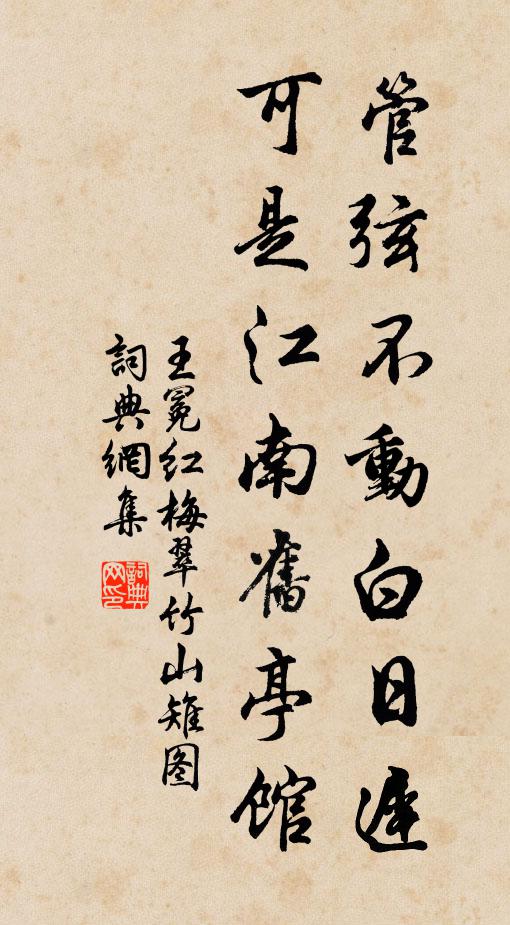 管弦不動白日遲
可是江南舊亭館
王冕紅梅翠竹山雉图
詞典網集
詞典网印